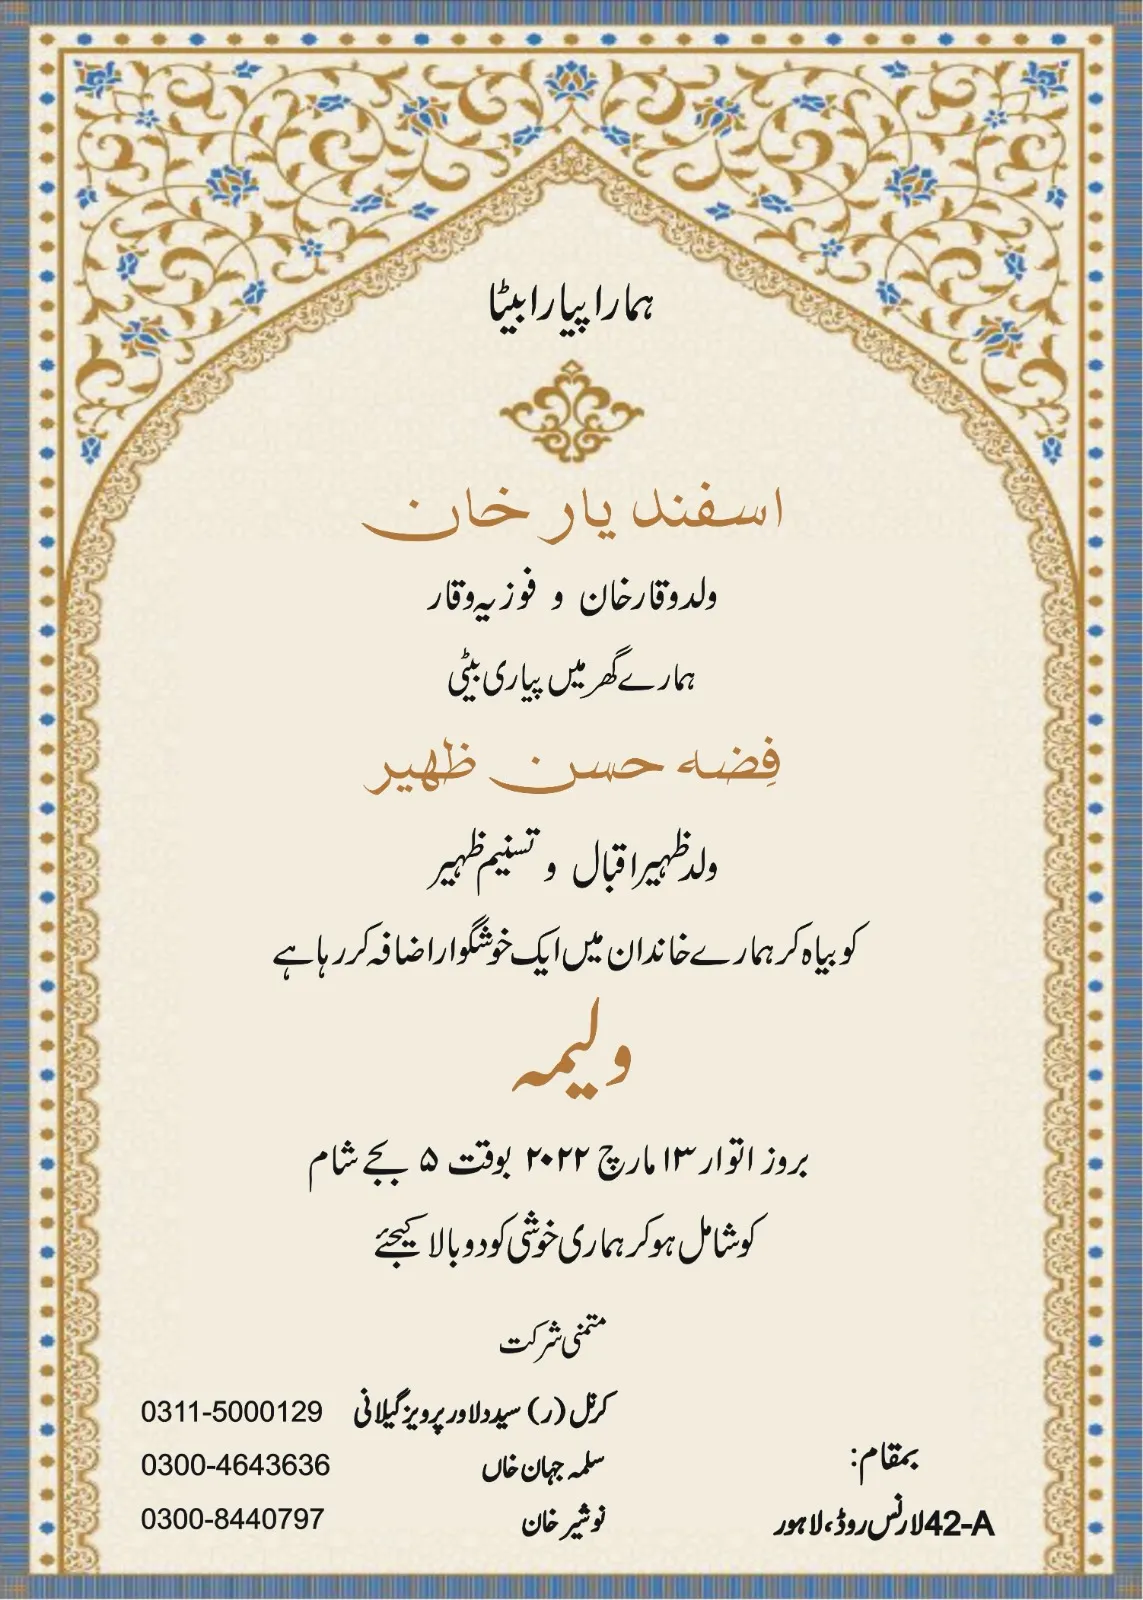 ہمارا پیارا بیٹا
اسفند یار خان
ولد وقار خان و فوزیہ وقار
ہمارے گھر میں پیاری بیٹی
فِضہ حسن ظہیر
ولد ظہیر اقبال و تسنیم ظہیر
کو بیاہ کر ہمارے خاندان میں ایک خوشگوار اضافہ کر رہا ہے
ولیمہ
بروز اتوار ۱۳ مارچ ۲۰۲۲ بوقت ۵ بجے شام
کو شامل ہو کر ہماری خوشی کو دوبالا کیجئے
متمنی شرکت
کرنل (ر) سید دلاور پرویز گیلانی 0311-5000129
سلمہ جہان خاں 0300-4643636
نوشیر خان 0300-8440797
بمقام:
42-A لارنس روڈ، لاہور